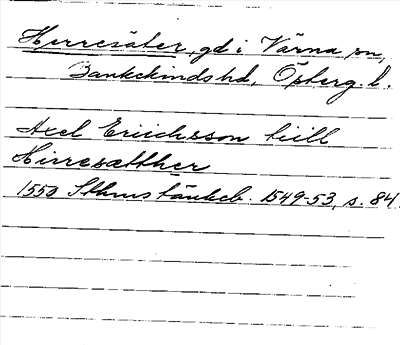 Herresäter, gd i Värna sn,
Bankekinds hd, Österg. l.
Axel Eriichsson tiill
Hirresætther
1550 Sthms tänkeb. 1549-53, s. 84.